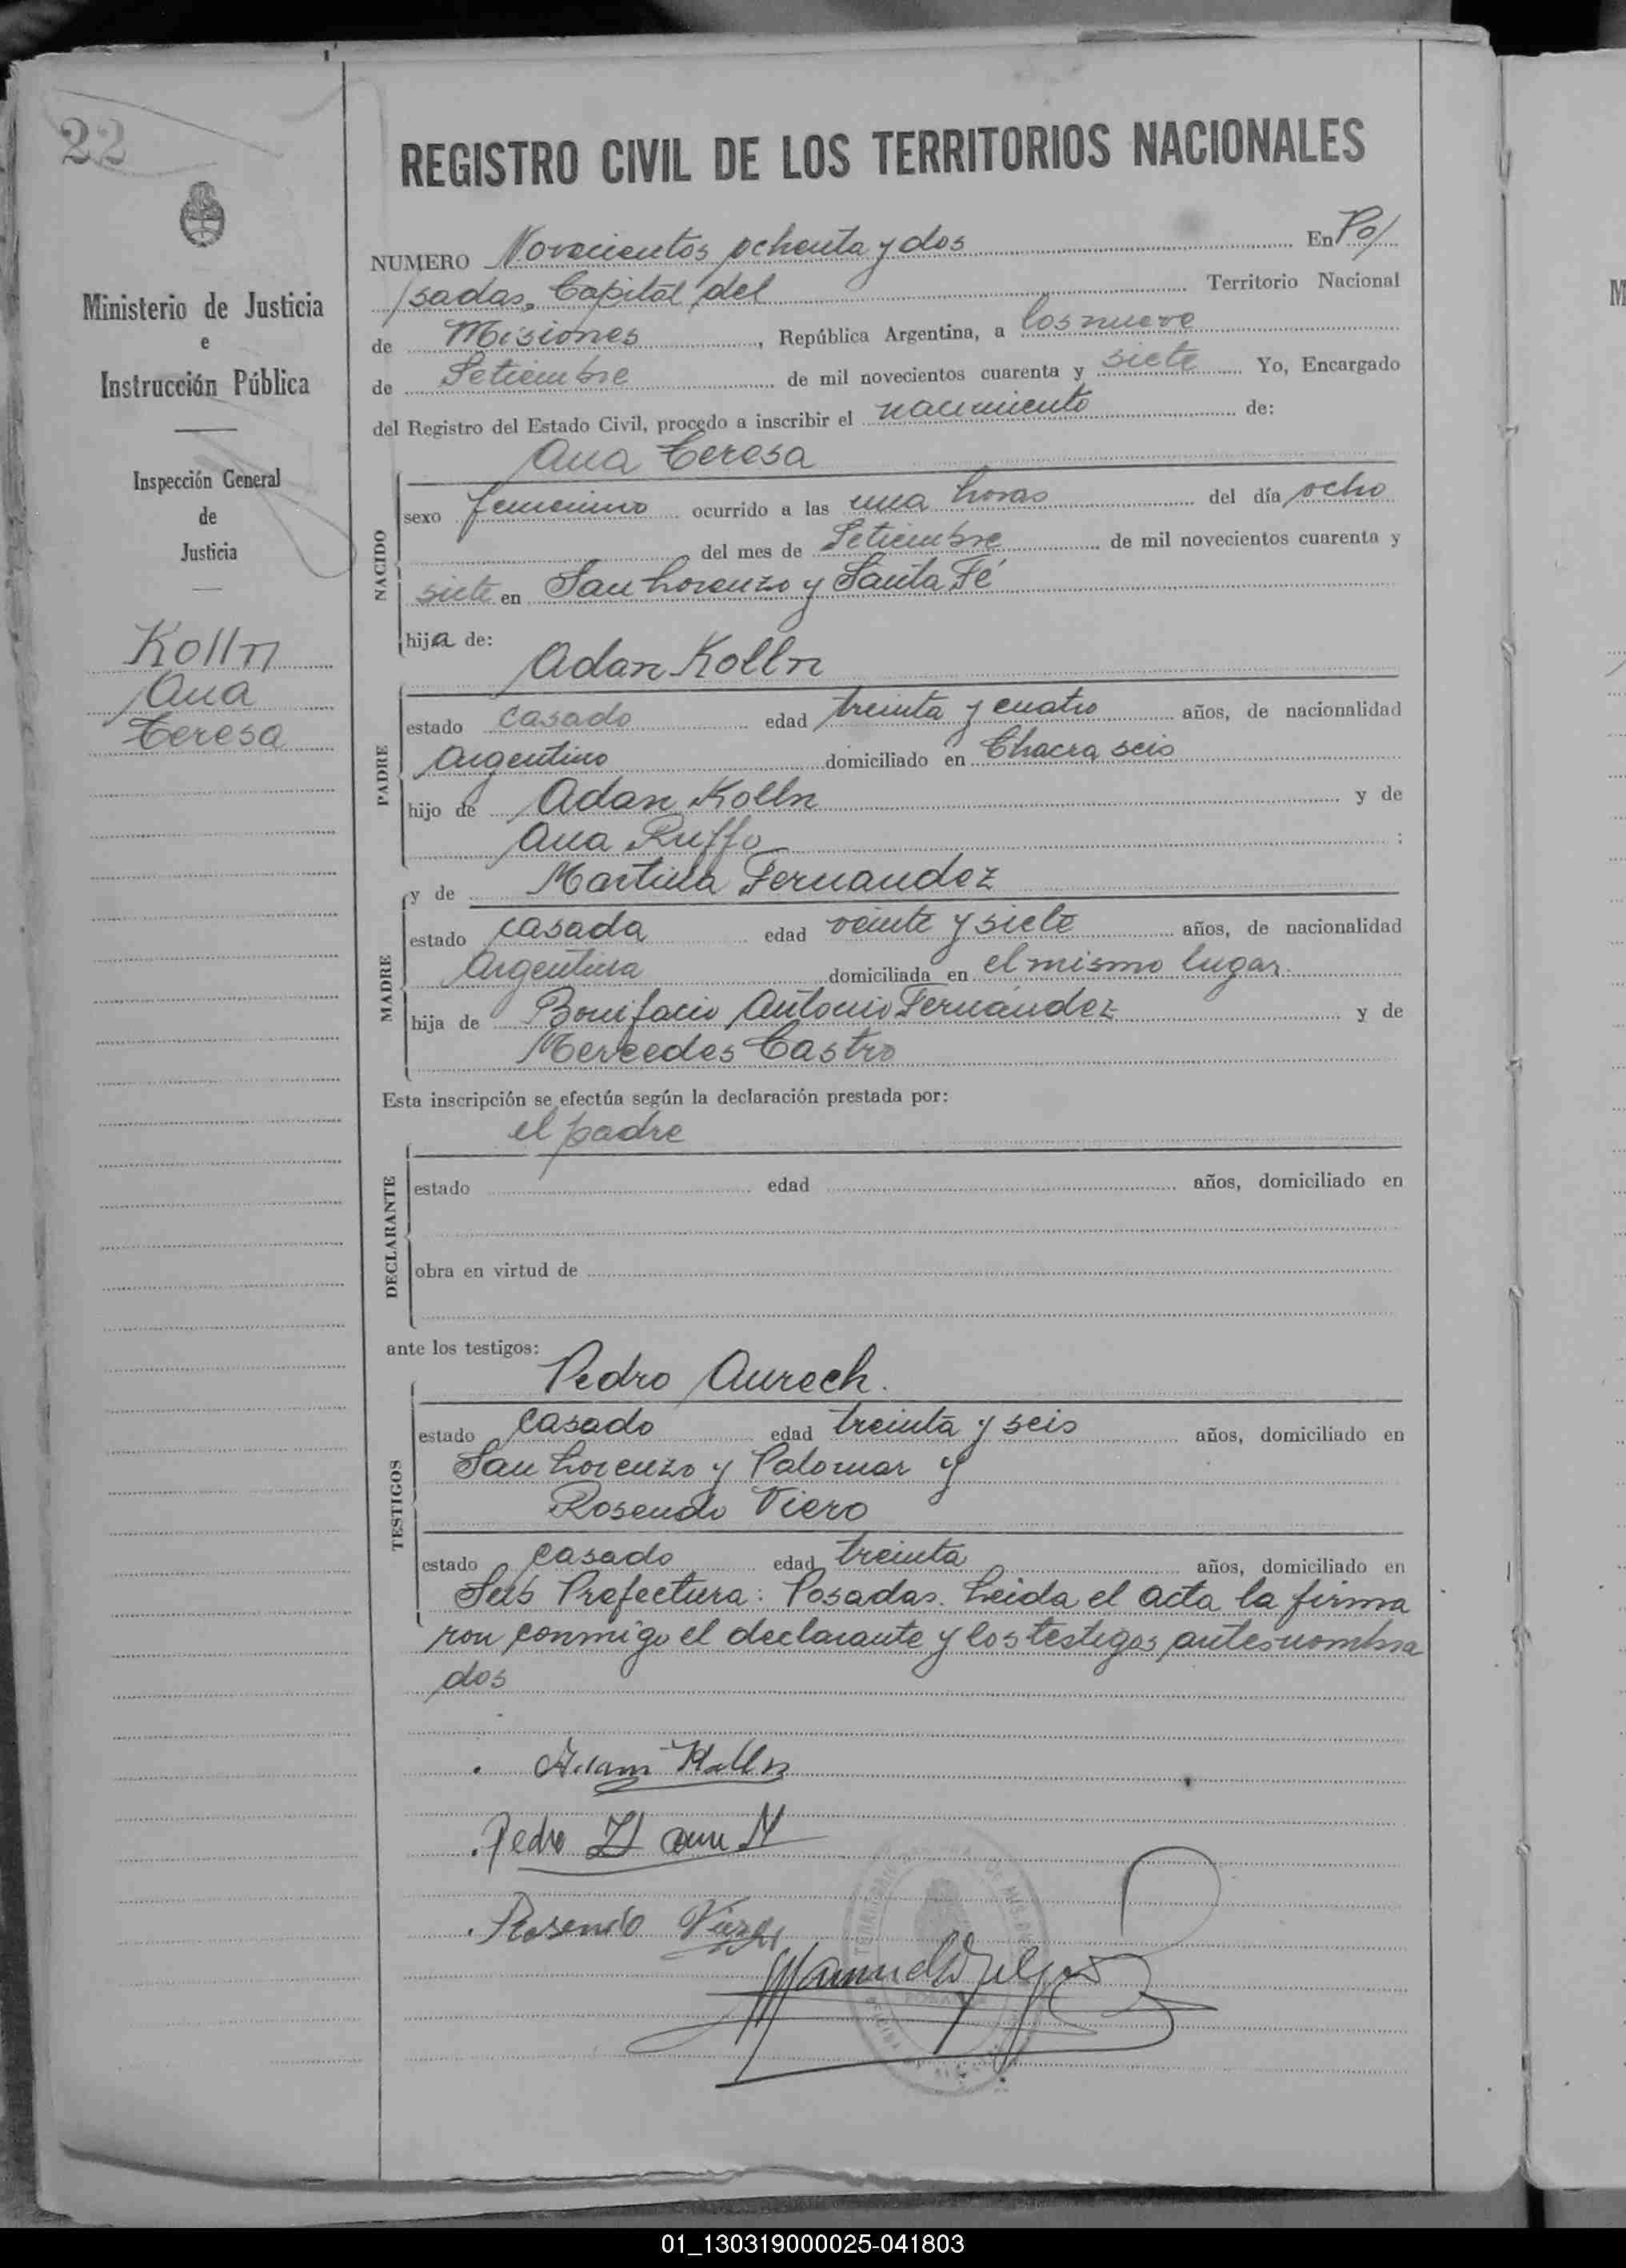 22
Ministerio de Justicia
e
Instrucción Pública
Inspección General
de
Justicia
Kolln
Ana
Teresa
REGISTRO CIVIL DE LOS TERRITORIOS NACIONALES
NUMERO Novecientos ochenta y dos En Po/
/sadas, Capital del Territorio Nacional
de Misiones, República Argentina, a los nueve
de Setiembre de mil novecientos cuarenta y siete Yo, Encargado
del Registro del Estado Civil, procedo a inscribir el nacimiento de:
Ana Teresa
NACIDO
sexo femenino ocurrido a las una horas del día ocho
del mes de Setiembre de mil novecientos cuarenta y
siete en San Lorenzo y Santa Fé
hija de:
Adan Kolln
PADRE
estado casado edad treinta y cuatro años, de nacionalidad
Argentino domiciliado en Chacra seis
hijo de Adan Kolln y de
Ana Ruffo ;
y de Martina Fernandez
MADRE
estado casada edad veinte y siete años, de nacionalidad
Argentina domiciliada en el mismo lugar.
hija de Bonifacio Antonio Fernández y de
Mercedes Castro
Esta inscripción se efectúa según la declaración prestada por:
el padre
DECLARANTE
estado edad años, domiciliado en
obra en virtud de
ante los testigos:
Pedro Aurech.
TESTIGOS
estado casado edad treinta y seis años, domiciliado en
San Lorenzo y Palomar y
Rosendo Viero
estado casado edad treinta años, domiciliado en
Sub Prefectura: Posadas. Leida el acta la firma
ron conmigo el declarante y los testigos antes nombra
dos
Adam Kolln
Pedro
Rosendo
01_130319000025-041803